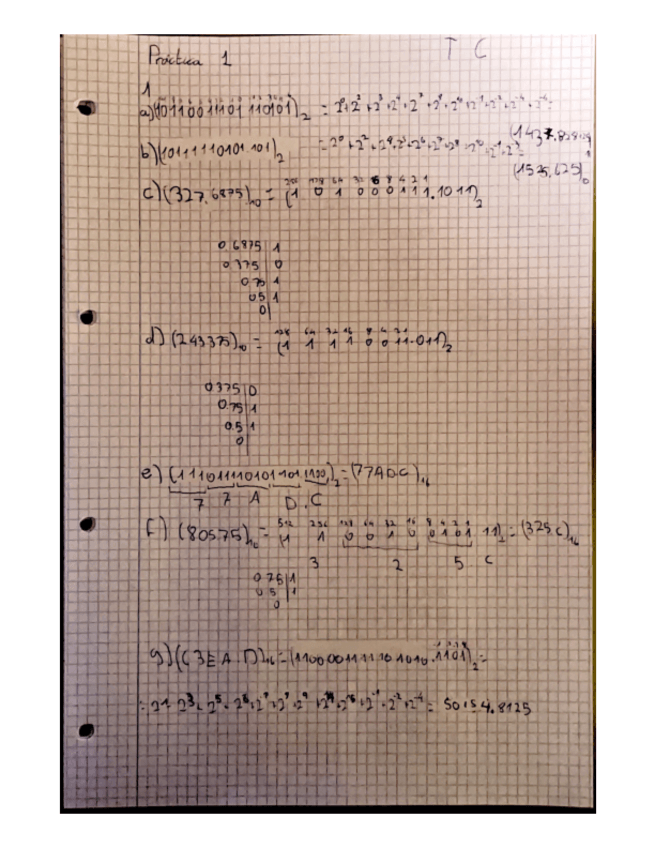 Práctica 1 T C
1
a) (10110011101.110101)₂ = 2⁰+2²+2³+2⁴+2⁷+2⁸+2¹⁰+2⁻¹+2⁻²+2⁻⁴+2⁻⁶=
b) (10111110101.101)₂ = 2⁰+2²+2⁴+2⁵+2⁶+2⁷+2⁸+2¹⁰+2⁻¹+2⁻³=
(1525,625)₁₀
c) (327,6875)₁₀ = (1 0 1 0 0 0 1 1 1.1011)₂
0.6875 1
0.375 0
0.75 1
0.5 1
0
d) (243.375)₁₀ = (1 1 1 1 0 0 11.011)₂
0.375 0
0.75 1
0.5 1
0
e) (111011110101101.1100)₂ = (77AD.C)₁₆
7 7 A D . C
f) (805.75)₁₀ = (1 1 0 0 1 0 0 1 0 1 .11)₂ = (325.C)₁₆
3 2 5 C
0.75 1
0.5 1
0
g) (C3EA.D)₁₆ = (1100001111101010.1101)₂ =
= 50154.8125